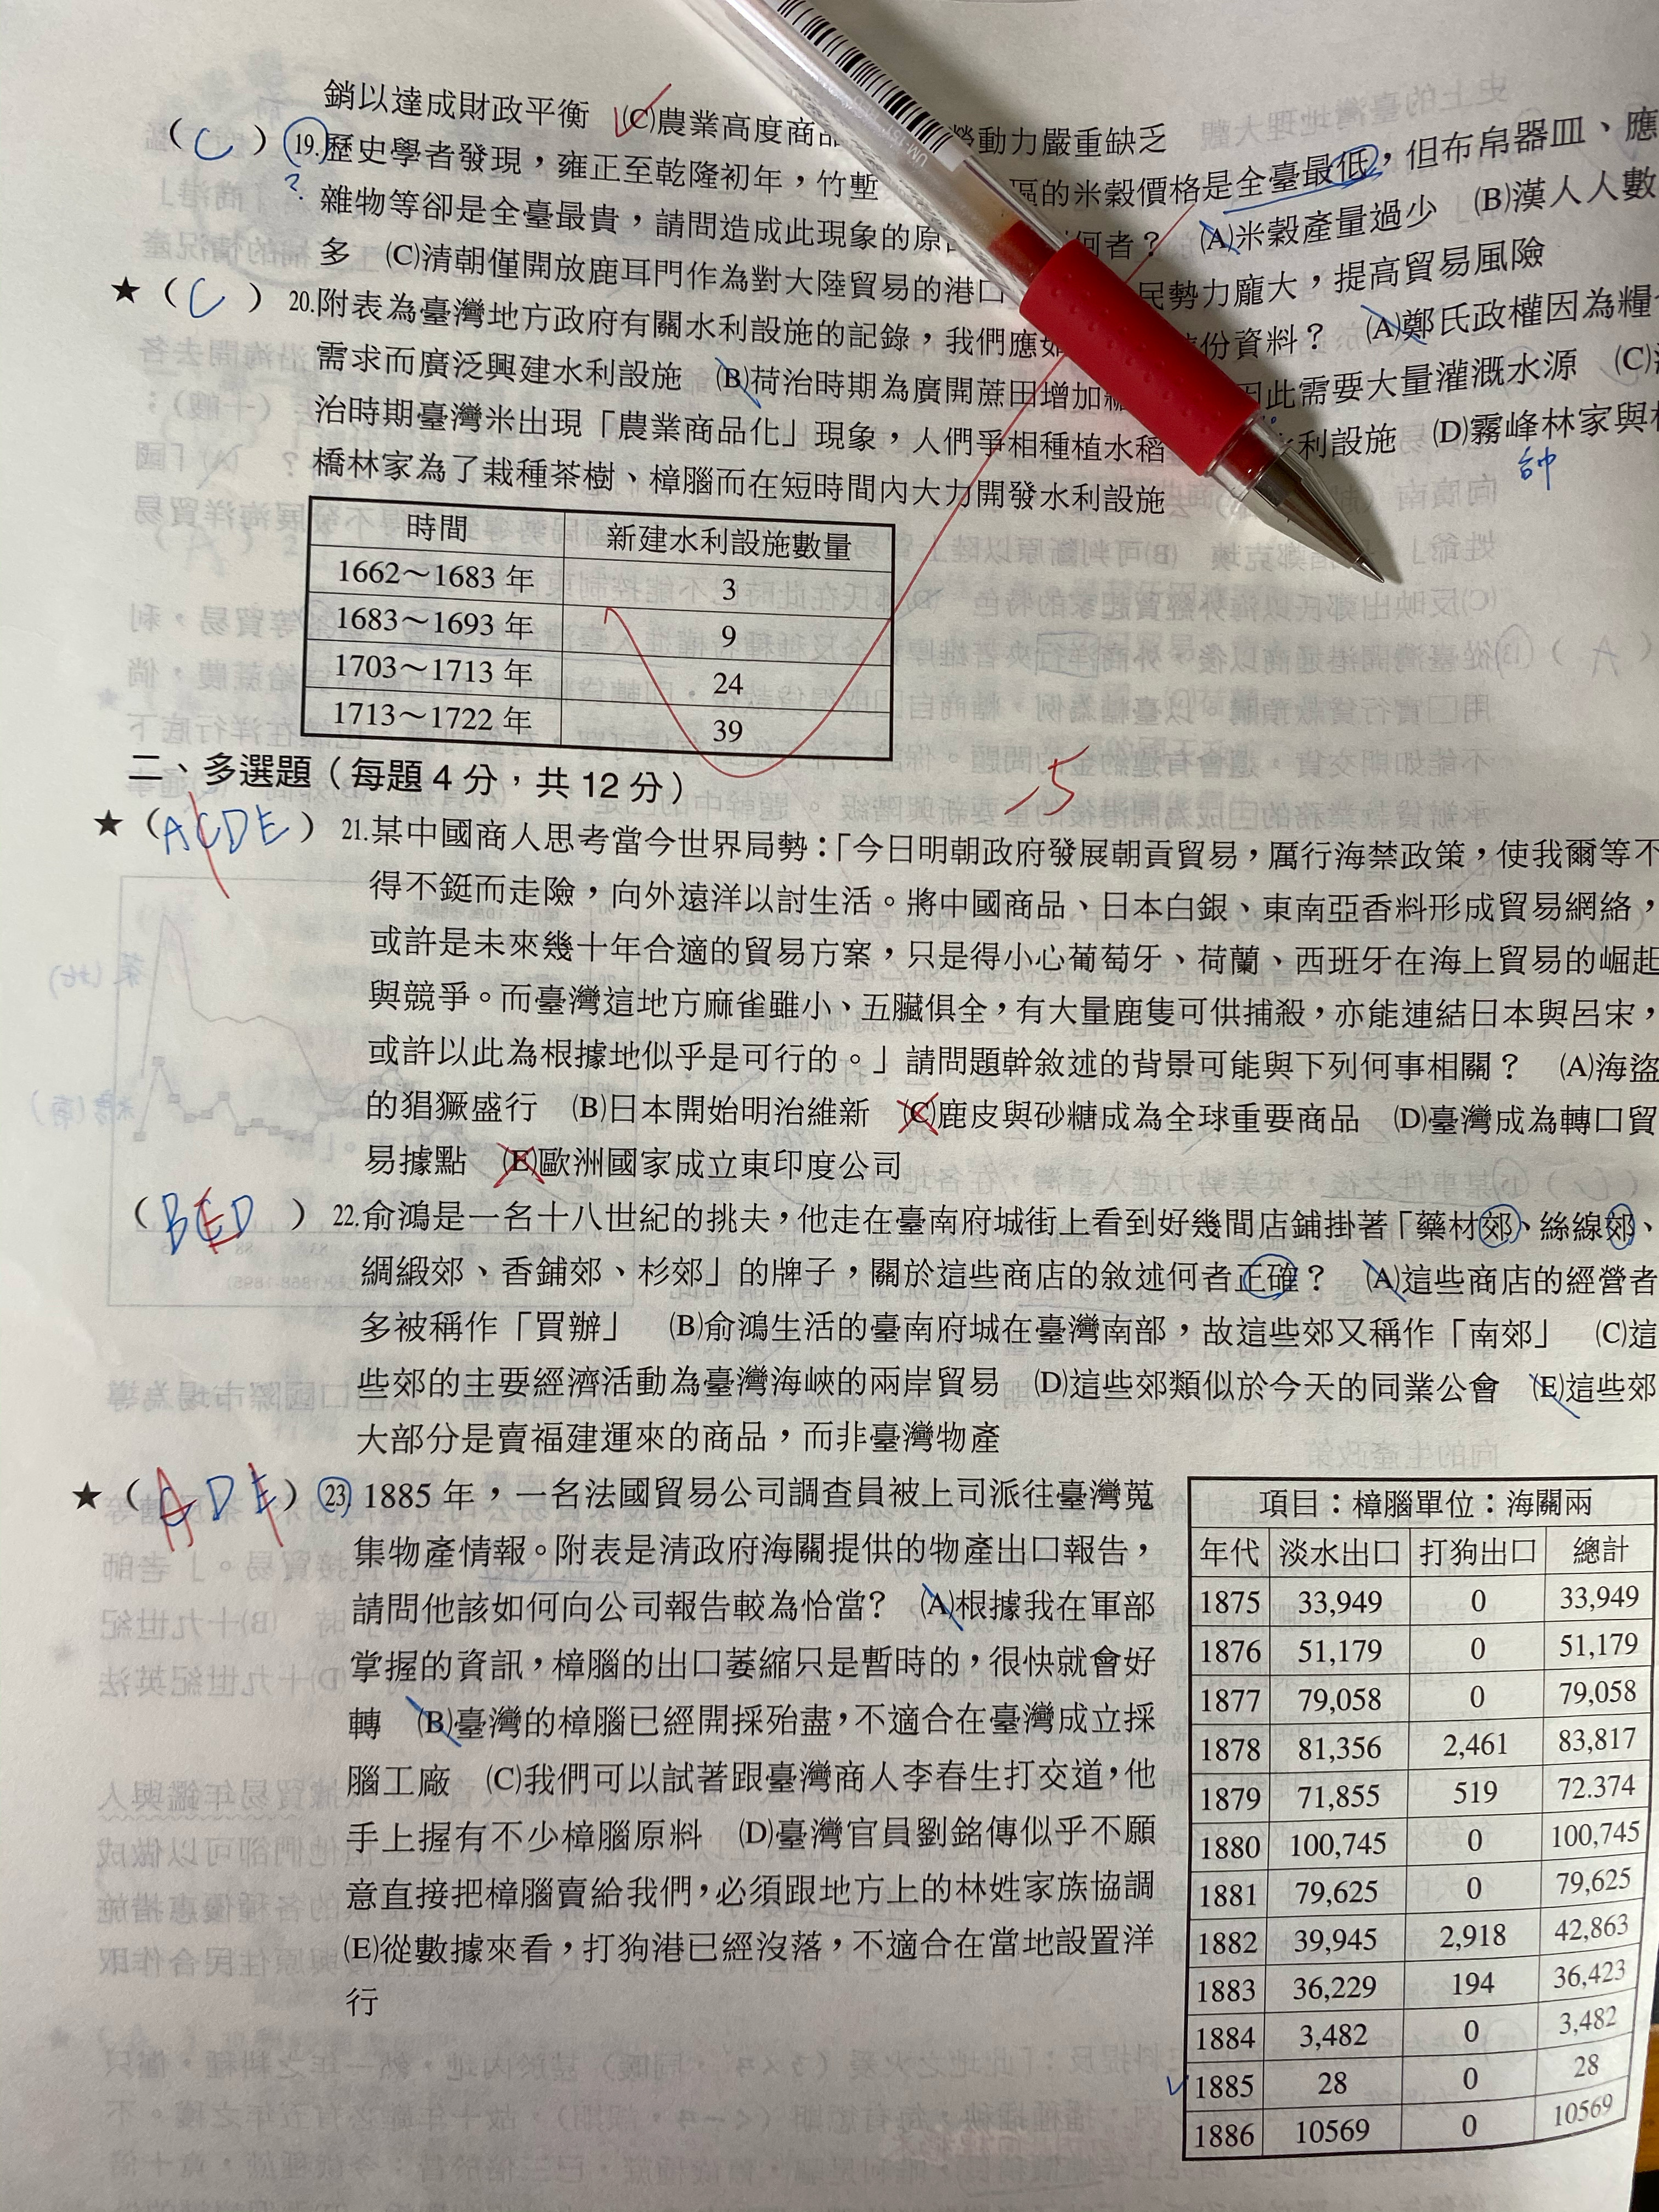 銷以達成財政平衡 (C)農業高度商品 勞動力嚴重缺乏
( C ) 19.歷史學者發現，雍正至乾隆初年，竹塹 區的米穀價格是全臺最低，但布帛器皿、應
? 雜物等卻是全臺最貴，請問造成此現象的原因 何者？ (A)米穀產量過少 (B)漢人人數
多 (C)清朝僅開放鹿耳門作為對大陸貿易的港口 民勢力龐大，提高貿易風險
★ ( C ) 20.附表為臺灣地方政府有關水利設施的記錄，我們應如 這份資料？ (A)鄭氏政權因為糧
需求而廣泛興建水利設施 (B)荷治時期為廣開蔗田增加 因此需要大量灌溉水源 (C)
治時期臺灣米出現「農業商品化」現象，人們爭相種植水稻 水利設施 (D)霧峰林家與
橋林家為了栽種茶樹、樟腦而在短時間內大力開發水利設施
時間 新建水利設施數量
1662～1683 年 3
1683～1693 年 9
1703～1713 年 24
1713～1722 年 39
-5
二、多選題（每題 4 分，共 12 分）
★ ( ACDE ) 21.某中國商人思考當今世界局勢：「今日明朝政府發展朝貢貿易，厲行海禁政策，使我爾等不
得不鋌而走險，向外遠洋以討生活。將中國商品、日本白銀、東南亞香料形成貿易網絡，
或許是未來幾十年合適的貿易方案，只是得小心葡萄牙、荷蘭、西班牙在海上貿易的崛起
與競爭。而臺灣這地方麻雀雖小、五臟俱全，有大量鹿隻可供捕殺，亦能連結日本與呂宋，
或許以此為根據地似乎是可行的。」請問題幹敘述的背景可能與下列何事相關？ (A)海盜
的猖獗盛行 (B)日本開始明治維新 (C)鹿皮與砂糖成為全球重要商品 (D)臺灣成為轉口貿
易據點 (E)歐洲國家成立東印度公司
( BED ) 22.俞鴻是一名十八世紀的挑夫，他走在臺南府城街上看到好幾間店鋪掛著「藥材郊、絲線郊、
綢緞郊、香鋪郊、杉郊」的牌子，關於這些商店的敘述何者正確？ (A)這些商店的經營者
多被稱作「買辦」 (B)俞鴻生活的臺南府城在臺灣南部，故這些郊又稱作「南郊」 (C)這
些郊的主要經濟活動為臺灣海峽的兩岸貿易 (D)這些郊類似於今天的同業公會 (E)這些郊
大部分是賣福建運來的商品，而非臺灣物產
★ ( ADE ) 23. 1885 年，一名法國貿易公司調查員被上司派往臺灣蒐
集物產情報。附表是清政府海關提供的物產出口報告，
請問他該如何向公司報告較為恰當？ (A)根據我在軍部
掌握的資訊，樟腦的出口萎縮只是暫時的，很快就會好
轉 (B)臺灣的樟腦已經開採殆盡，不適合在臺灣成立採
腦工廠 (C)我們可以試著跟臺灣商人李春生打交道，他
手上握有不少樟腦原料 (D)臺灣官員劉銘傳似乎不願
意直接把樟腦賣給我們，必須跟地方上的林姓家族協調
(E)從數據來看，打狗港已經沒落，不適合在當地設置洋
行
項目：樟腦單位：海關兩
年代 淡水出口 打狗出口 總計
1875 33,949 0 33,949
1876 51,179 0 51,179
1877 79,058 0 79,058
1878 81,356 2,461 83,817
1879 71,855 519 72.374
1880 100,745 0 100,745
1881 79,625 0 79,625
1882 39,945 2,918 42,863
1883 36,229 194 36,423
1884 3,482 0 3,482
1885 28 0 28
1886 10569 0 10569